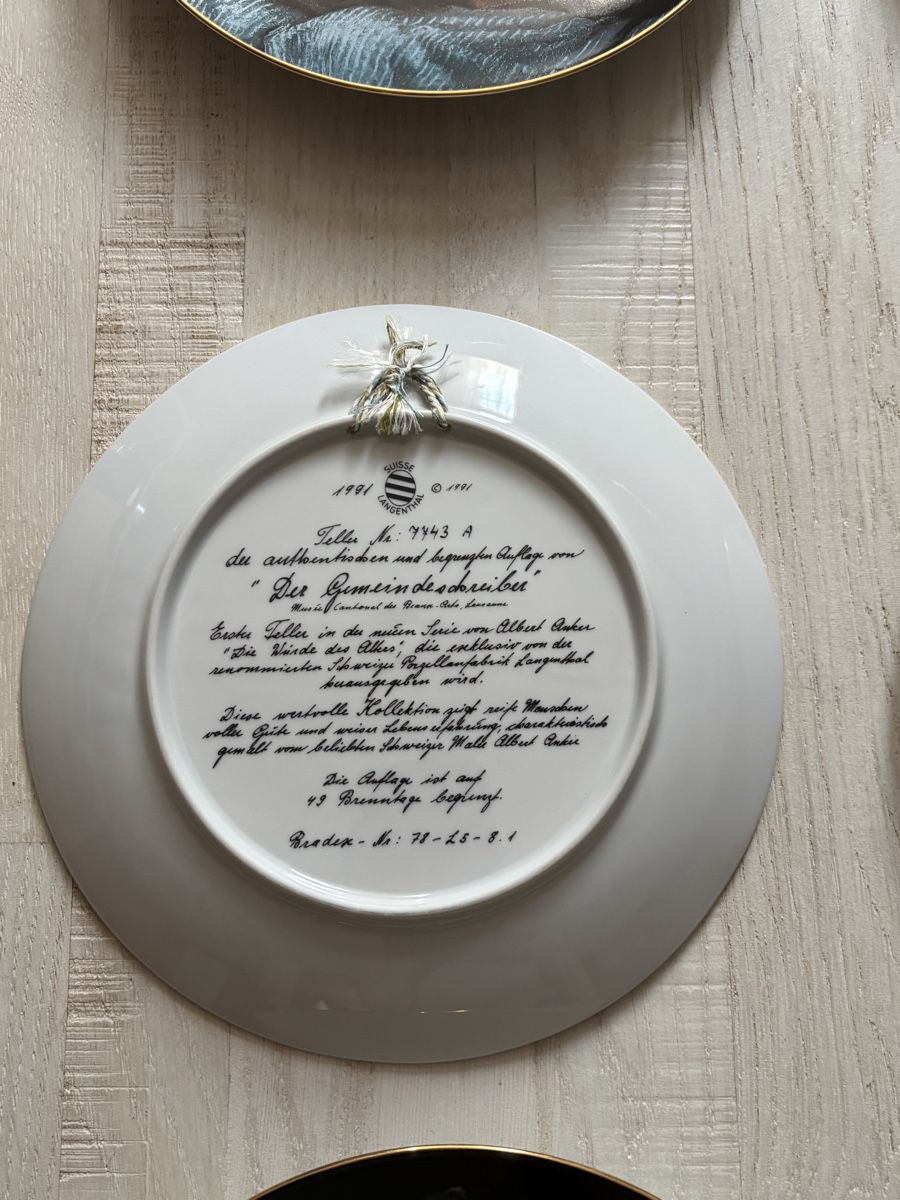 SUISSE
1991 © 1991
LANGENTHAL
Teller Nr: 7743 A
der authentischen und begrenzten Auflage von
"Der Gemeindeschreiber"
Musée Cantonal des Beaux-Arts, Lausanne
Erster Teller in der neuen Serie von Albert Anker
"Die Würde des Alters", die exklusiv von der
renommierten Schweizer Porzellanfabrik Langenthal
herausgegeben wird.
Diese wertvolle Kollektion zeigt reife Menschen
voller Güte und weiser Lebenserfahrung, charakteristisch
gemalt vom beliebten Schweizer Maler Albert Anker
Die Auflage ist auf
49 Brenntage begrenzt.
Bradex-Nr: 78-L5-8.1